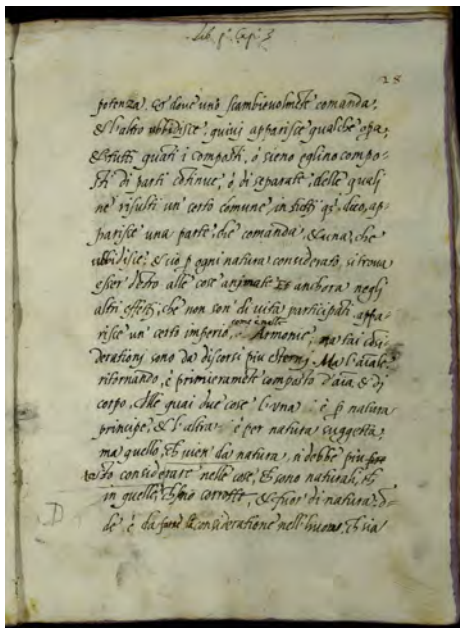 Lib. p.º Cap. 3
28
potenza, et dove uno scambievolmēte comanda,
& l'altro ubbidisce, quivi apparisce qualche opa;
& tutti quāti i composti, ò sieno eglino compo-
sti di parti cōtinue, ò di separate, delle quali
ne risulti un certo comune, in tutti qs.ti, dico, ap-
parisce una parte, che comanda, & una, che
ubbidisce; & ciò p ogni natura considerato, si trova
esser dētro alle cose animate et anchora negli
altri effetti, che non son di vita participati, appa-
risce un certo imperio, come è nelle Armonie; ma tai cōsi-
derationi sono da discorsi piu esterni. Ma l'aīale,
ritornando, è primieramēte composto d'aīa, & di
corpo, delle quai due cose l'una è p natura
principe, & l'altra è per natura suggetta,
ma quello, ch vien da natura, si debbe piu
to considerare nelle cose, ch sono naturali, ch
in quelle, ch sono corrotte, & fuor di natura; ō-
de è da consideratione nell'huomo, ch sia
D